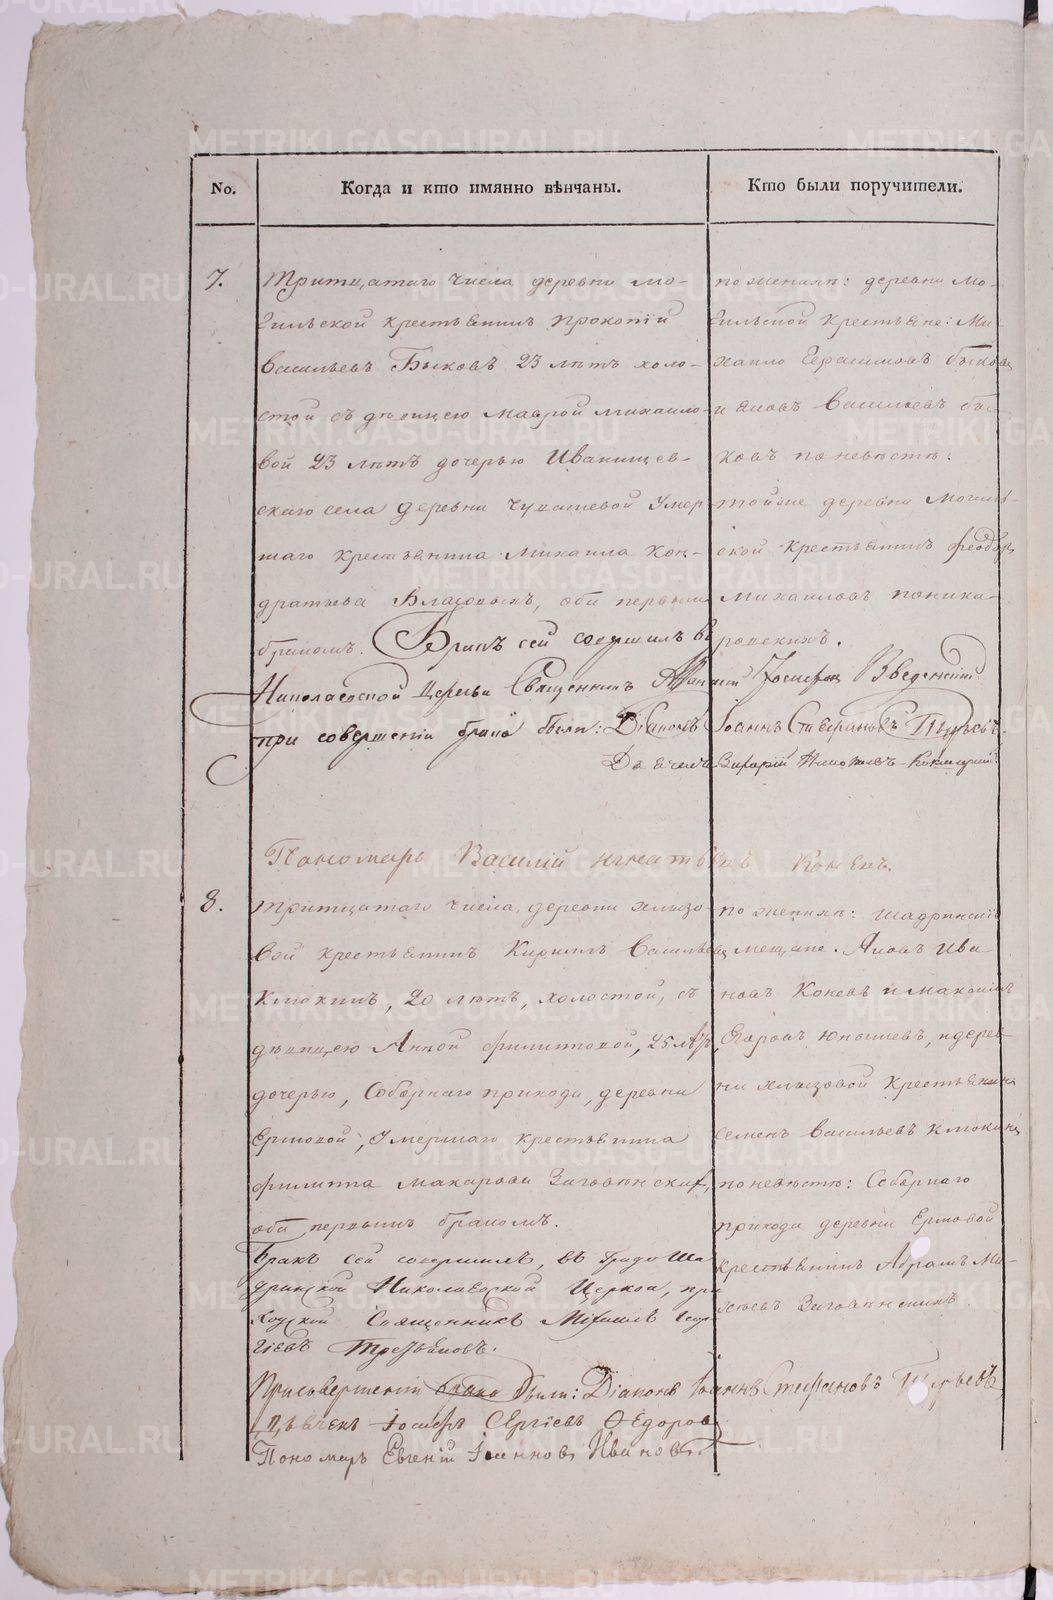 No.
Когда и кто имянно вѣнчаны.
Кто были поручители.
7.
Тритцатаго числа деревни Мо-
гильской крестьянинъ Прокопій
Васильевъ Быковъ 23 лѣтъ холо-
стой съ дѣвицею Маврой Михаило-
вой 23 лѣтъ дочерью Иванищев-
скаго села деревни умер-
шаго крестьянина Михаила Кон-
дратьева оба первымъ
бракомъ. Бракъ сей совершилъ
Николаевской Церкви Священникъ Введенскій
при совершеніи брака были: Діаконъ Іоаннъ Стефановъ
Дьячекъ Захарій
Пономарь Василій Игнатьевъ Коневъ
по женихѣ: деревни Мо-
гильской крестьяне: Ми-
хаило Герасимовъ Быковъ
и Яковъ Васильевъ Бы-
ковъ по невѣстѣ:
тойже деревни Могиль-
ской крестьянинъ Феодоръ
Михаиловъ Поника-
ровскихъ.
8.
Тритцатаго числа, деревни Хлызо
вой крестьянинъ Кириллъ Васильевъ
Клюкинъ, 20 лѣтъ, холостой, съ
дѣвицею Анной Филипповой, 25 лѣтъ,
дочерью, Соборнаго прихода, деревни
Ермовой, умершаго крестьянина
Филиппа Макарова
оба первымъ бракомъ.
Бракъ сей совершилъ, въ Градо Ша
дринской Николаевской Церкви, при
ходской Священникъ Михаилъ Геор
гіевъ Третьяковъ.
При совершеніи брака были: Діаконъ Іоаннъ Стефановъ
Дьячекъ Іосифъ Сергіевъ Федоров
Пономарь Евгеній Іоанновъ Ивановъ
по женихѣ: Шадринскіе
мещане. Яковъ Ива
новъ Коневъ и Максимъ
Егоровъ Юнышевъ, и дерев
ни Хлызовой крестьянинъ
Семенъ Васильевъ Клюкинъ
по невѣстѣ: Соборнаго
прихода деревни Ермовой
крестьянинъ Абрамъ Ма-
METRIKI.GASO-URAL.RU